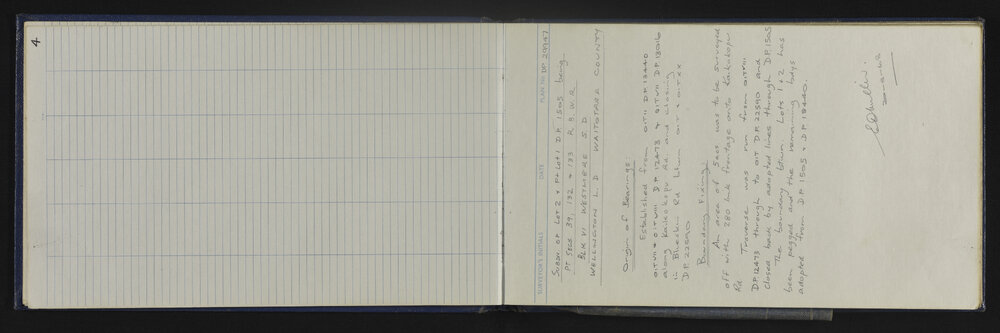 4
SURVEYOR'S INITIALS DATE PLAN No DP 29947
SUBDN OF LOT 2 & Pt LOT 1 DP 1505 being
PT SECS 39, 132 & 133 R.B.W.R.
BLK VI WESTMERE S.D
WELLINGTON L.D WAITOTARA COUNTY
Origin of Bearings:
Established from OIT II DP 13440
OIT VII & OIT VIII DP 12473 & OIT VII DP 13016
along Kaikokopu Rd and closing
in Rd OIT & OIT XX
DP 22590
Boundary Fixing:
An area of 5acs was to be surveyed
off with 280 link frontage onto Kaikokopu
Rd
Traverse was run from OIT VIII
DP 12473 through to OIT DP 22590 and
closed back by adopted lines through DP 1505
The boundary btwn Lots 1 & 2 has
been pegged and the remaining bdys
adopted from DP 1505 & DP 13440.